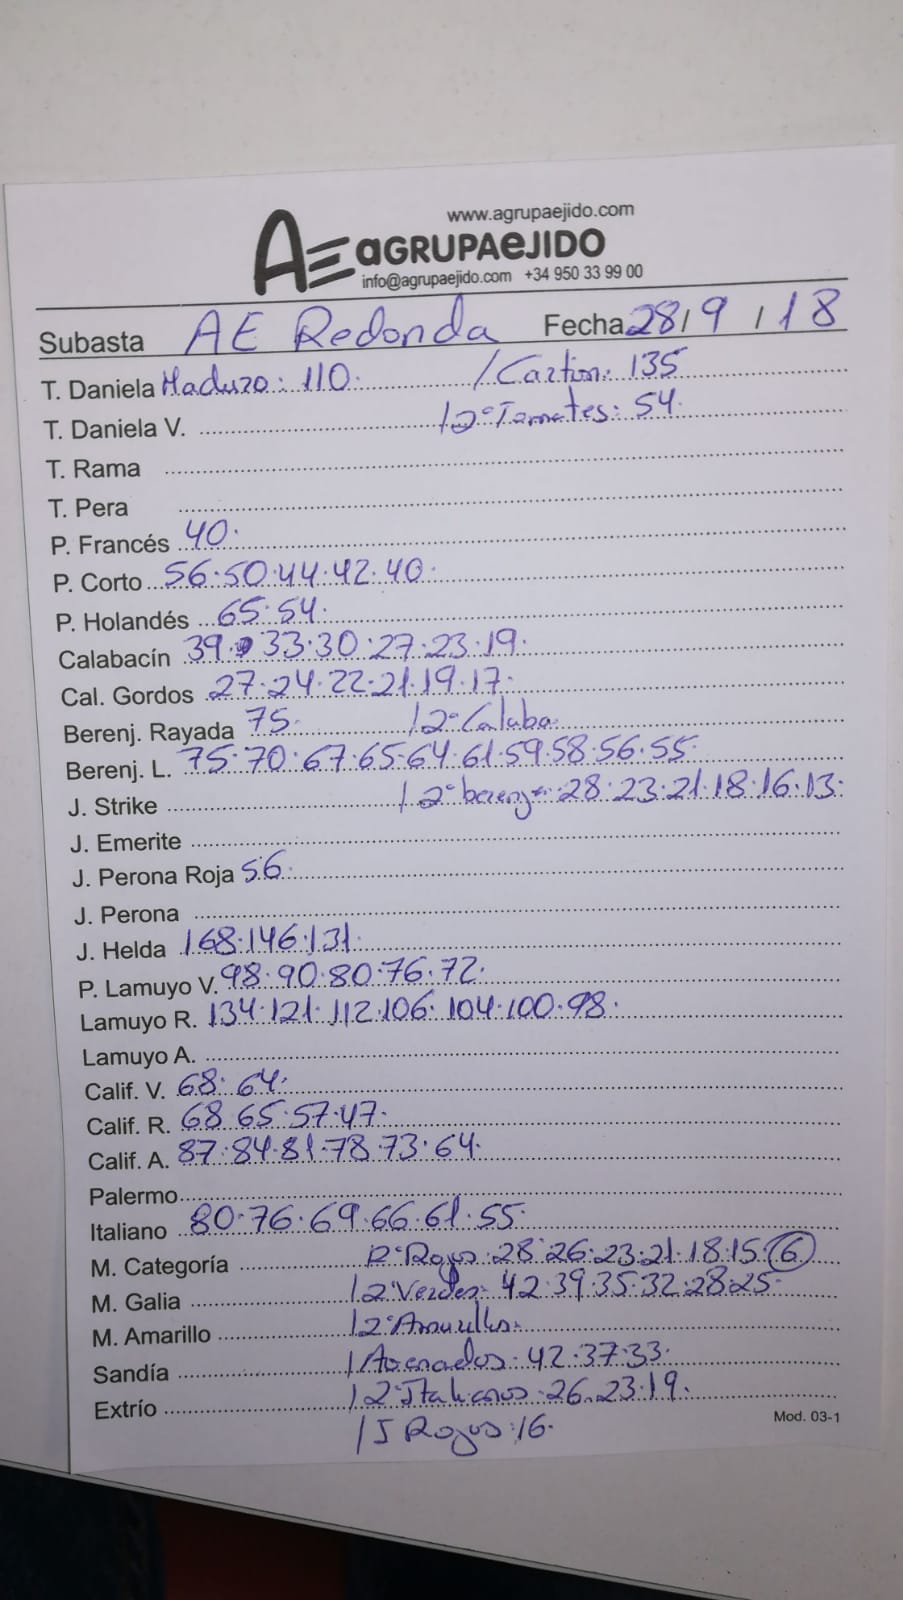 www.agrupaejido.com
AE aGRUPAeJIDO
info@agrupaejido.com +34 950 33 99 00
Subasta AE Redonda Fecha 28/9/18
T. Daniela Maduro: 110. / Carton: 135
T. Daniela V. / 2ª Tomates: 54.
T. Rama
T. Pera
P. Francés 40.
P. Corto 56.50.44.42.40.
P. Holandés 65.54.
Calabacín 39.33.30.27.23.19.
Cal. Gordos 27.24.22.21.19.17.
Berenj. Rayada 75. / 2ª Calaba.
Berenj. L. 75.70.67.65.64.61.59.58.56.55.
J. Strike / 2ª bereng: 28.23.21.18.16.13.
J. Emerite
J. Perona Roja 56.
J. Perona
J. Helda 168.146.131.
P. Lamuyo V. 98.90.80.76.72.
Lamuyo R. 134.121.112.106.104.100.98.
Lamuyo A.
Calif. V. 68.64.
Calif. R. 68 65.57.47.
Calif. A. 87.84.81.78.73.64.
Palermo
Italiano 80.76.69.66.61.55.
M. Categoría 2ª Rojos: 28.26.23.21.18.15.6
M. Galia / 2ª Verdes: 42.39.35.32.28.25.
M. Amarillo / 2ª Amarillos.
Sandía / Asenados: 42.37.33.
Extrío / 2ª Italianos: 26.23.19.
/ J Rojos: 16.
Mod. 03-1